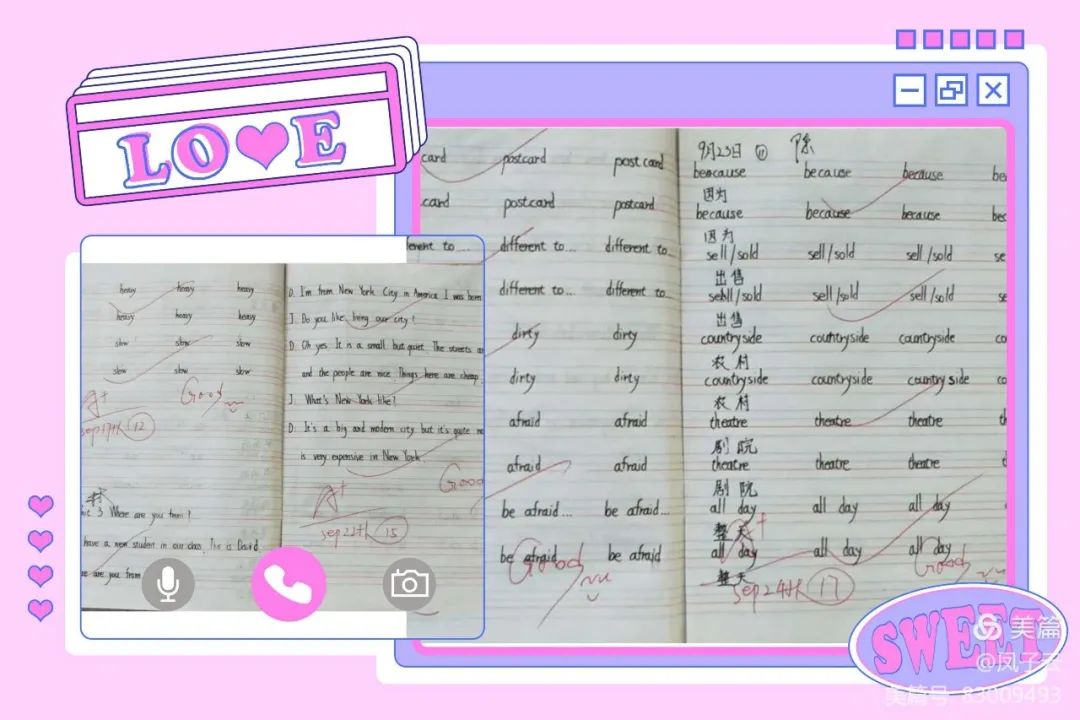 LOVE
heavy heavy heavy
heavy heavy heavy
slow slow slow
slow slow slow
A+ Good
sep17th 12
3 Where are you from?
have a new student in our class. This is David.
are you from
D: I'm from New York City in America. I was born
J: Do you like living our city?
D: Oh yes. It is a small but quiet. The streets
and the people are nice. Things here are cheap.
J: What's New York like?
D: It's a big and modern city but it's quite
is very expensive in New York.
A+ Good
sep22th 15
card postcard postcard
card postcard postcard
different to... different to... different to...
different to... different to
dirty dirty
dirty dirty
afraid afraid
afraid afraid
be afraid... be afraid...
be afraid be afraid
Good
9月23日 陈
because because because be
因为
because because because bec
因为
sell/sold sell/sold sell/sold se
出售
sell/sold sell/sold sell/sold se
出售
countryside countryside countryside co
农村
countryside countryside countryside co
农村
theatre theatre theatre t
剧院
theatre theatre theatre
剧院
all day all day all day
整天
all day all day all day
整天
sep24th 17 Good
SWEET
美篇
@凤子云
美篇号 83009493